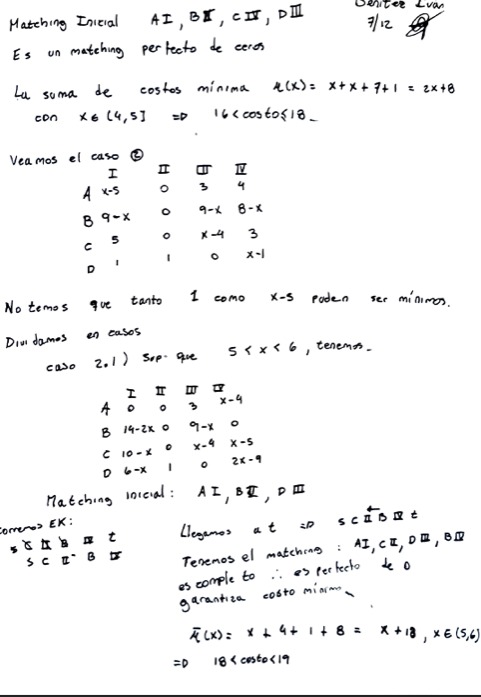 Benitez Ivan
7/12
Matching Inicial AI, BII, CIV, DIII
Es un matching perfecto de ceros
La suma de costos minima h(x)= x+x+7+1 = 2x+8
con x ∈ (4,5] => 16<costo≤18_
Veamos el caso ②
I II III IV
A x-5 0 3 4
B 9-x 0 9-x 8-x
C 5 0 x-4 3
D 1 1 0 x-1
Notemos que tanto 1 como x-5 pueden ser mínimos.
Dividamos en casos
caso 2.1) Sup. que 5<x<6, tenemos_
I II III IV
A 0 0 3 x-4
B 14-2x 0 9-x 0
C 10-x 0 x-4 x-5
D 6-x 1 0 2x-9
Matching inicial: AI, BII, DIII
Corremos EK:
s C II B IV t
s C II⁻ B IV
Llegamos a t => s C II B IV t
Tenemos el matching: AI, CII, DIII, BIV
es completo ∴ es perfecto de 0
garantiza costo mínimo
h(x)= x+4+1+8 = x+13, x∈(5,6)
=> 18<costo<19